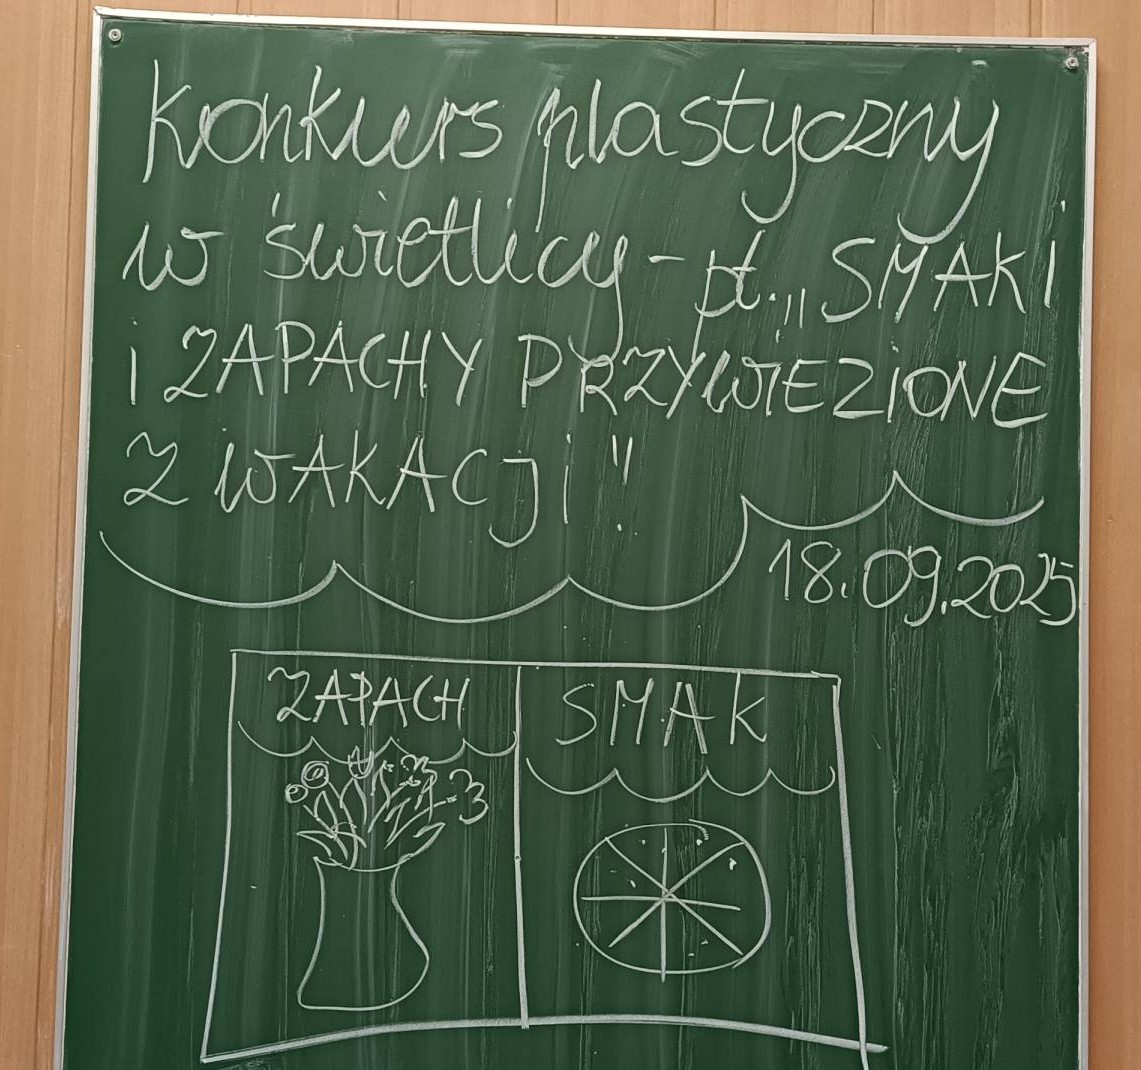 Konkurs plastyczny
w świetlicy - pt. „SMAKI
i ZAPACHY PRZYWIEZIONE
Z WAKACJi".
18.09.2025
ZAPACH
SMAK